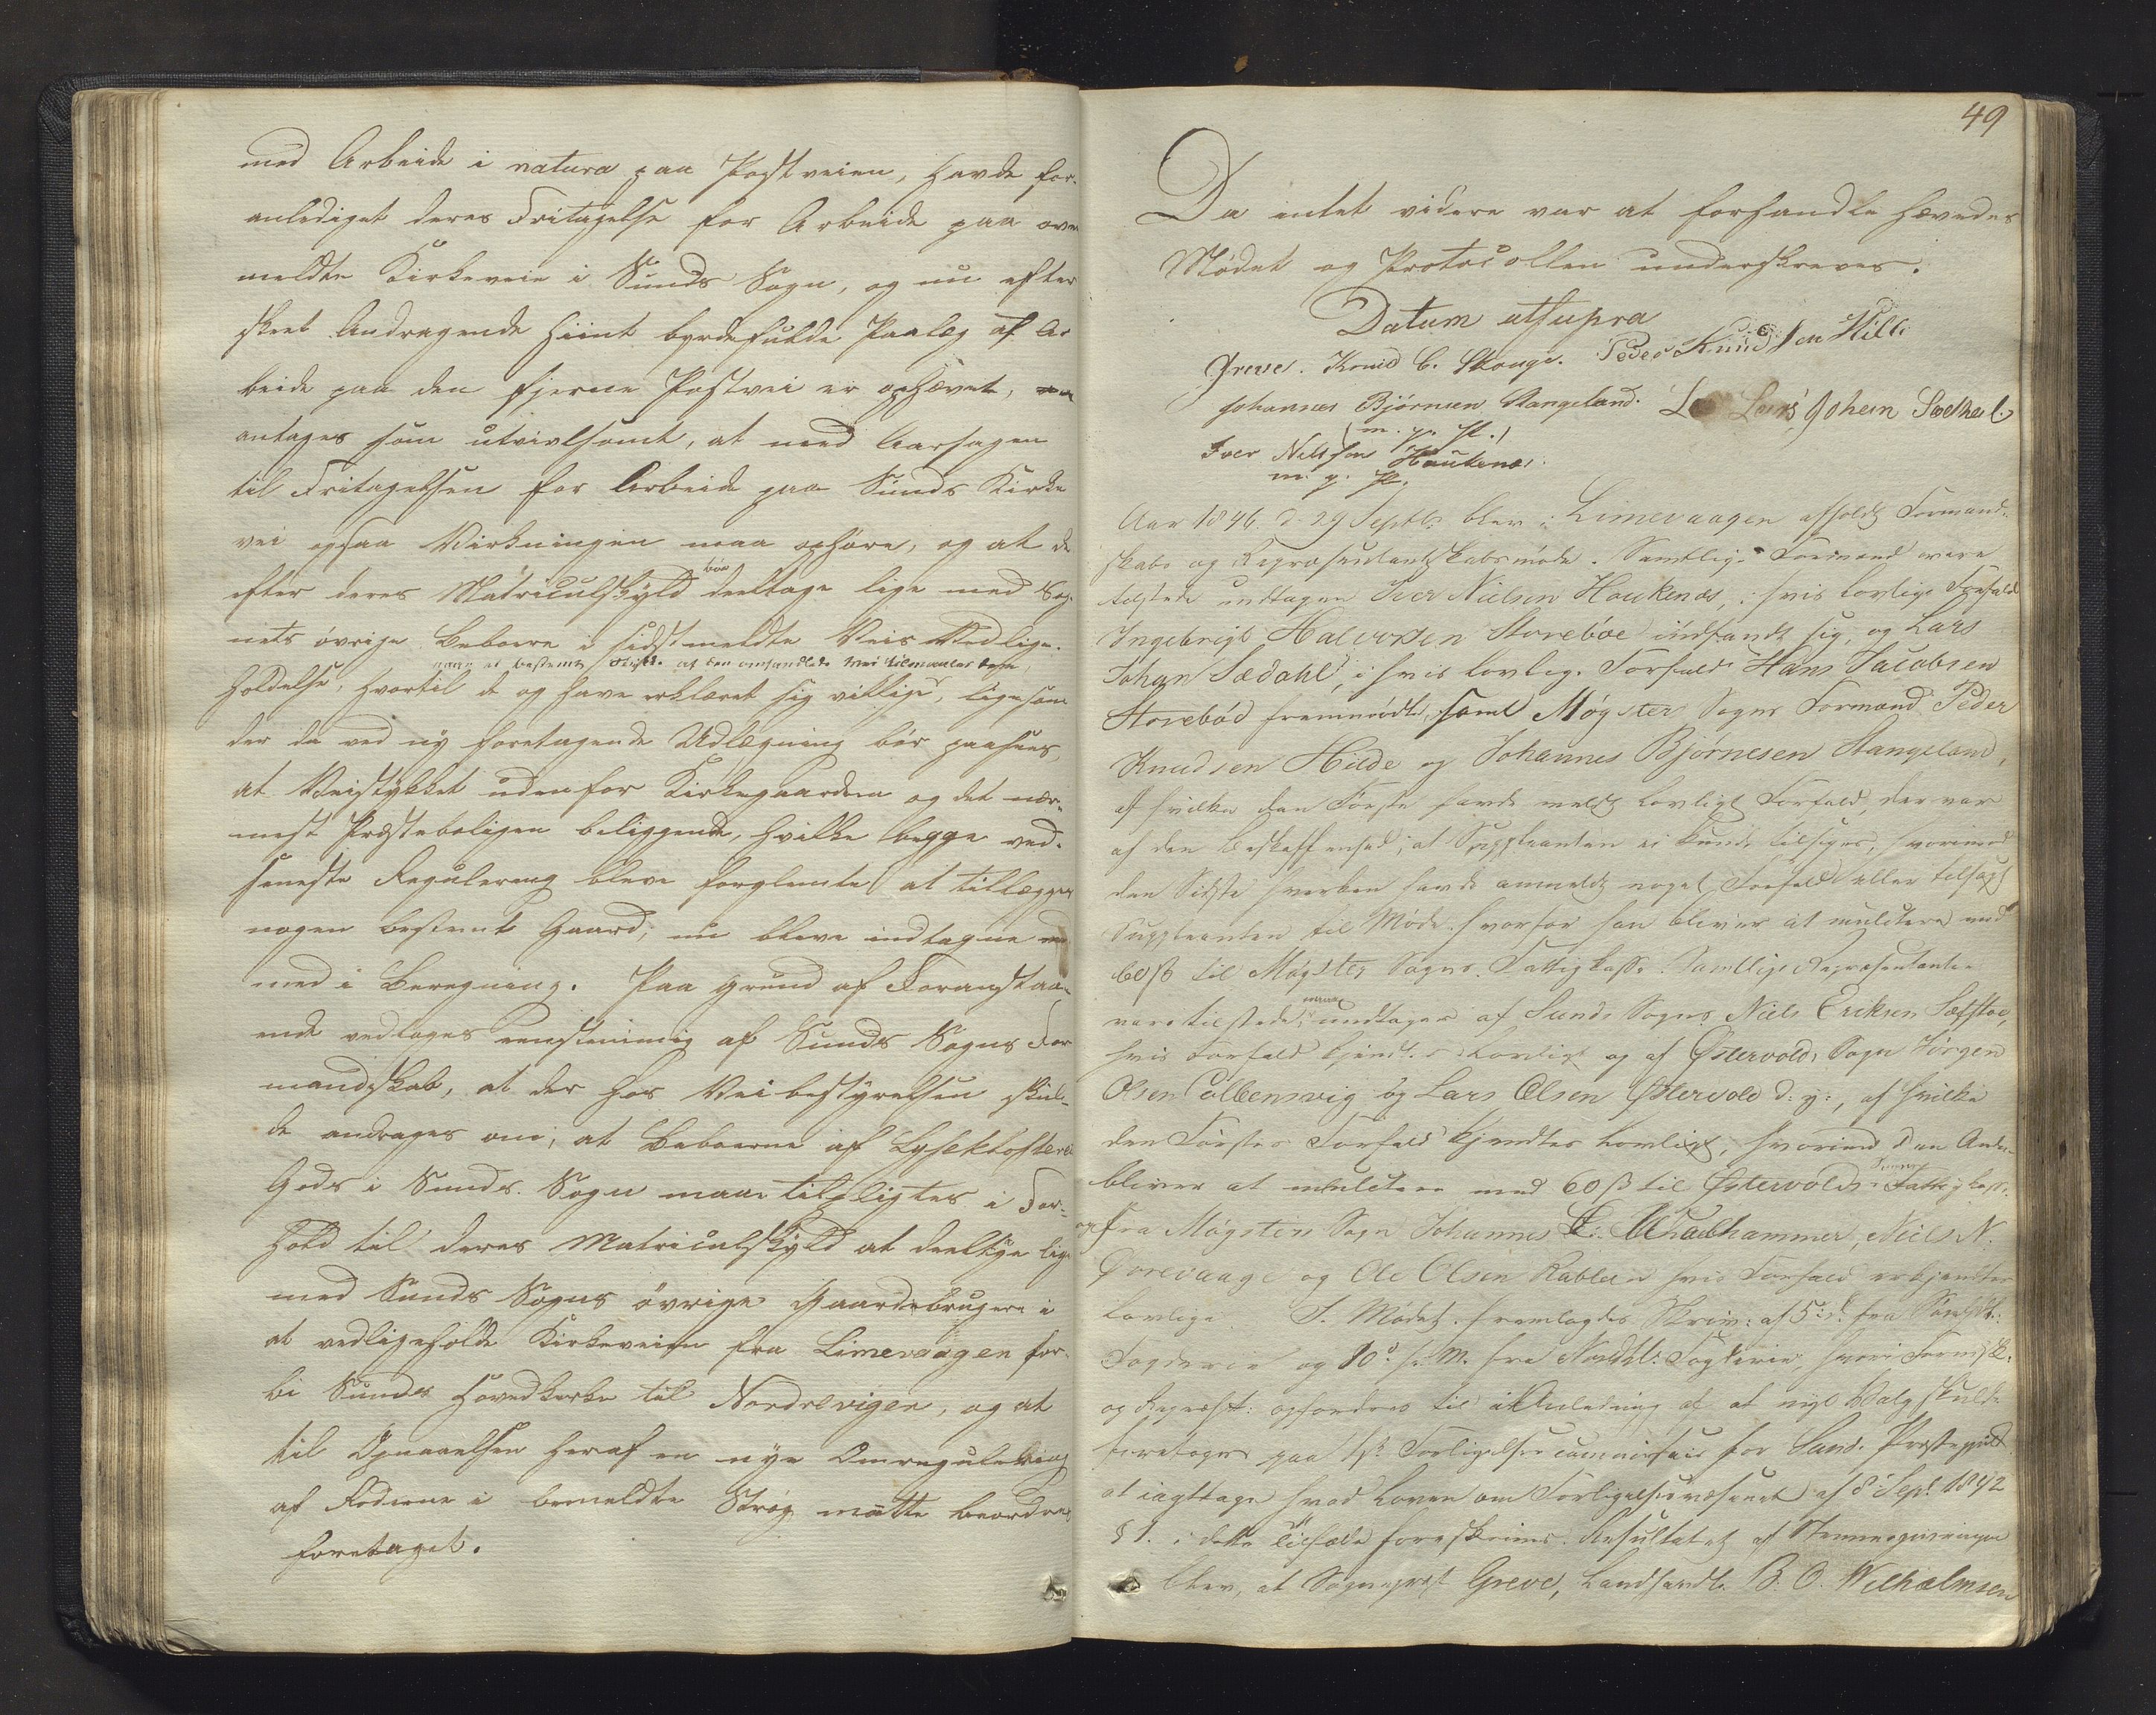 med Arbeide i natura paa Postveien, havde for-
anlediget deres Fritagelse for Arbeide paa oven
meldte Kirkeveie i Sunds Sogn, og nu efter
skeet Andragende hiint byrdefulde Paalæg af Ar
beide paa den fjerne Postvei er ophævet,
antages som utvivlsomt, at med Aarsagen
til Fritagelsen for Arbeide paa Sunds Kirke
vei ogsaa Virkningen maa ophøre, og at de
efter deres Matriculskyld bør deeltage lige med Sog-
nets øvrige Beboere i sidstmeldte Veis Vedlige-
naar et bestemt Stykke af den omhandlede Vei tilmaales dem,
holdelse, hvortil de og have erklæret sig villige, ligesom
der da ved ny foretagende Udlægning bør paasees,
at Veistykket udenfor Kirkegaarden og det nær-
mest Præsteboligen beliggende, hvilke begge ved-
seneste Regulering bleve forglemte at tillægges
nogen bestemt Gaard, nu bleve indtagne
med i Beregning. Paa Grund af Foranstaa-
ende vedtoges eenstemmig af Sunds Sogns For
mandskab, at der hos Veibestyrelsen skul-
de andrages om, at Beboerne af Lyseklosters
Gods i Sunds Sogn maae tilpligtes i For-
hold til deres Matriculskyld at deeltage lige
med Sunds Sogns øvrige Gaardebrugere i
at vedligeholde Kirkeveien fra Limevaagen for-
bi Sunds Hovedkirke til Nordrevigen, og at
til Opnaaelsen heraf en nye Omregulering
af Roderne i bemeldte Strøg maatte beordres
foretaget.
49
Da intet videre var at forhandle hævedes
Mødet og Protocollen underskreves.
Datum utsupra
Greve. Knud C. Skouge. Peder Knudsen Hille
Johannes Bjørnsen Stangeland. Lars Johan Sædhal
m. p. P.
Iver Nilsson Haukenæs.
m. p. P.
Aar 1846 d. 29 Septbr blev i Limevaagen afholdt Formand-
skabs og Repræsentantskabsmøde. Samtlige Formænd vare
tilstede undtagen Iver Nielsen Haukenæs, i hvis lovlige Forfald
Ingebrigt Halvorsen Storebøe indfandt sig, og Lars
Johan Sædahl, i hvis lovlig. Forfald Hans Jacobsen
Storebøe fremmødte, samt Møgster Sogns Formænd Peder
Knudsen Hilde og Johannes Bjørnesen Stangeland,
af hvilke den Første havde meldt lovligt Forfald, der var
af den Beskaffenhed, at Suppleanten ei kunde tilsiges, hvorimod
den Sidste hverken havde anmeldt noget Forfald eller tilsagt
Suppleanten til Møde hvorfor han bliver at mulctere med
60 ß til Møgster Sogns Fattigkasse. Samtlige Repræsentanter
vare tilstede, undtagen af Sunds Sogn Niels Eriksen Sæfstoe,
hvis Forfald kjendtes lovligt og af Østervolds Sogn Jørgen
Olsen Colbensvig og Lars Olsen Østervold d. y:, af hvilke
den Førstes Forfald kjendtes lovligt, hvorimod den Anden
bliver at mulctere med 60 ß til Østervolds Sogns Fattigkasse,
og fra Møgster Sogn Johannes Hualhammer, Niels N.
Gorevaage og Ole Olsen Rabben hvis Forfald erkjendtes
lovlige. I Mødet fremlagdes Skriv: af 5. d. fra Søndhl:
Fogderie og 10. s. M. fra Nordhl: Fogderie, hvori Formsk.
og Repræst: opfordres til i Anledning af at nyt Valg skulde
foretages paa Forligelsescommissair for Sunds Præstegjeld
at iagttage hvad Loven om Forligelsesvæsenet af 8 Sept 1842
§ 1. i dette Tilfælde foreskrives. Resultatet af Stemmegivningen
blev, at Sognepræst Greve, Landhandl. B. O. Wilhelmsen